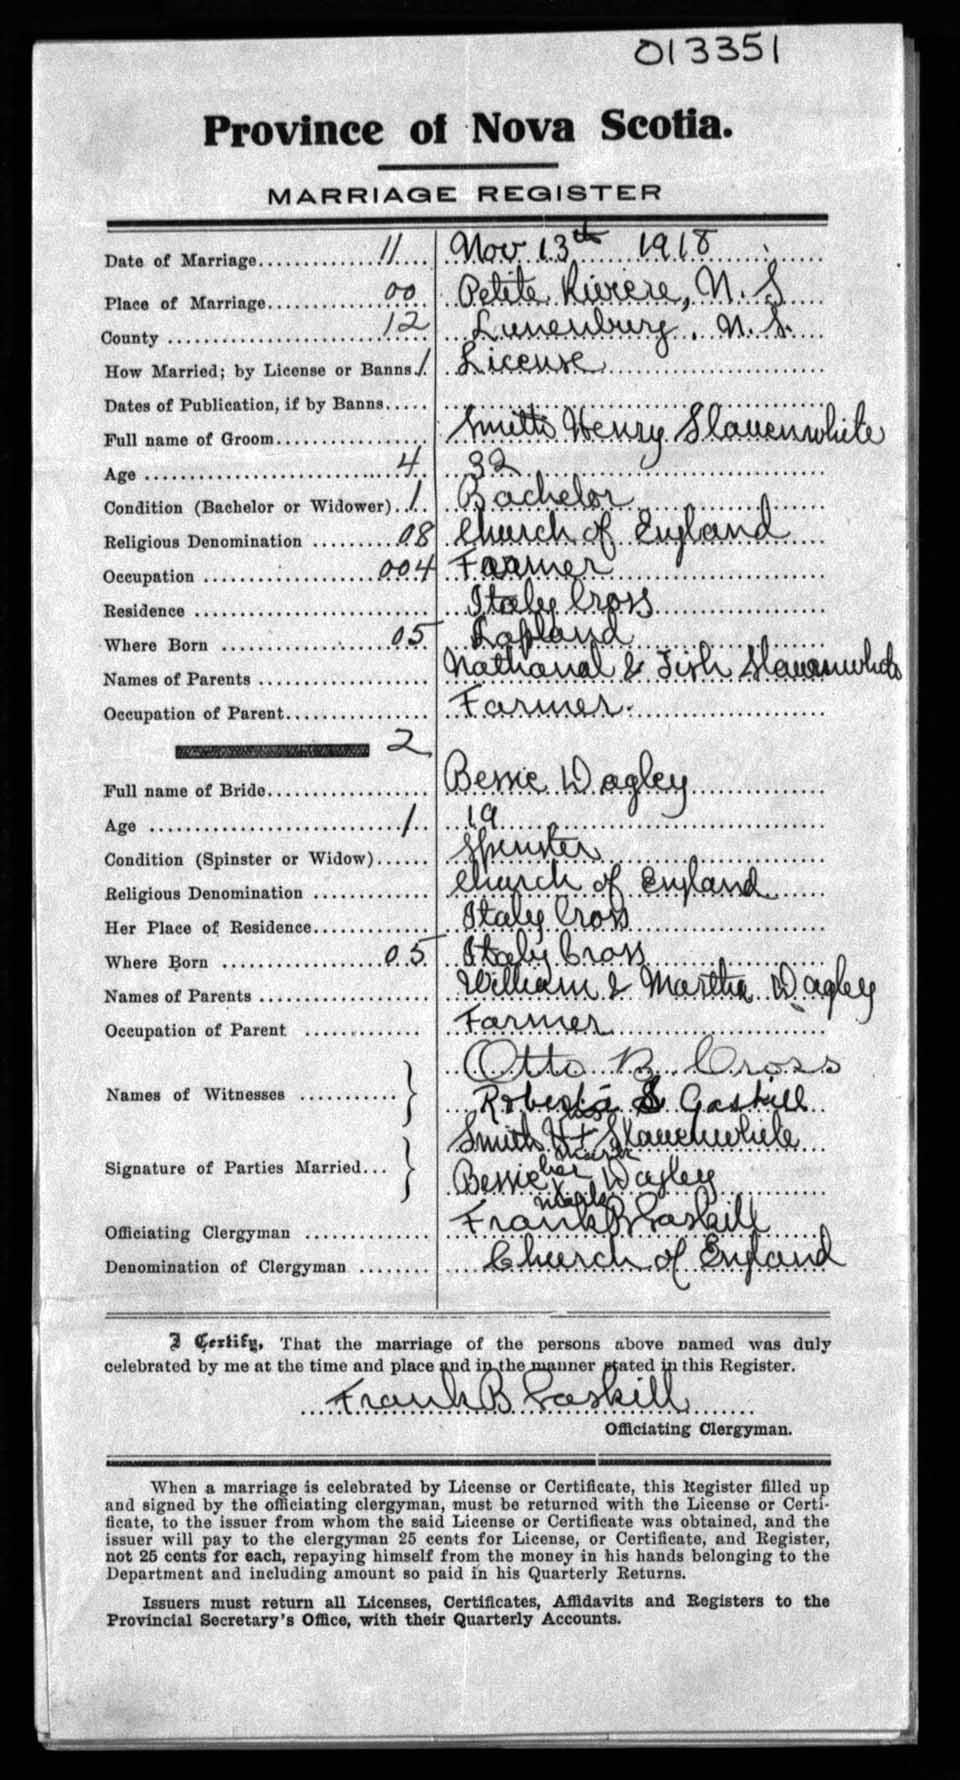 013351
Province of Nova Scotia.
MARRIAGE REGISTER
Date of Marriage 11 Nov 13th 1918
Place of Marriage 00 Petite Riviere, N. S
County 12 Lunenburg. N. S.
How Married; by License or Banns 1 License
Dates of Publication, if by Banns
Full name of Groom Smith Henry Slauenwhite
Age 4 32
Condition (Bachelor or Widower) 1 Bachelor
Religious Denomination 08 Church of England
Occupation 004 Farmer
Residence Italy Cross
Where Born 05 Lapland
Names of Parents Nathanal & Slauenwhite
Occupation of Parent Farmer.
2
Full name of Bride Bessie Dagley
Age 1 19
Condition (Spinster or Widow) Spinster
Religious Denomination Church of England
Her Place of Residence Italy Cross
Where Born 05 Italy Cross
Names of Parents William & Martha Dagley
Occupation of Parent Farmer
Otto B. Cross
Names of Witnesses
Roberta S Gaskill
his
Smith H + Slauenwhite
mark
Signature of Parties Married...
her
Bessie X Dagley
mark
Officiating Clergyman Frank B Gaskill
Denomination of Clergyman Church of England
I Certify, That the marriage of the persons above named was duly
celebrated by me at the time and place and in the manner stated in this Register.
Frank B Gaskill
Officiating Clergyman.
When a marriage is celebrated by License or Certificate, this Register filled up
and signed by the officiating clergyman, must be returned with the License or Certi-
ficate, to the issuer from whom the said License or Certificate was obtained, and the
issuer will pay to the clergyman 25 cents for License, or Certificate, and Register,
not 25 cents for each, repaying himself from the money in his hands belonging to the
Department and including amount so paid in his Quarterly Returns.
Issuers must return all Licenses, Certificates, Affidavits and Registers to the
Provincial Secretary's Office, with their Quarterly Accounts.